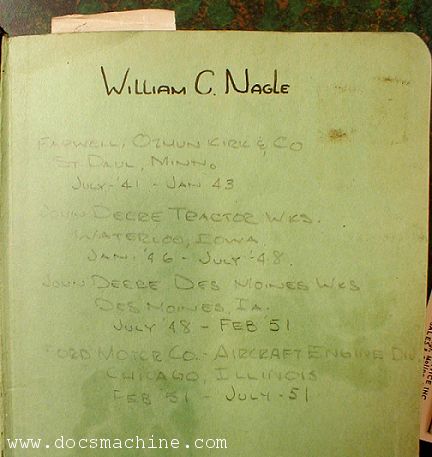 William C. Nagle
Farwell, Ozmun Kirk & Co
St Paul, Minn.
July-'41 - Jan 43
John Deere Tractor Wks.
Waterloo, Iowa
Jan. '46 - July '48.
John Deere Des Moines Wks
Des Moines, Ia.
July '48 - Feb '51
Ford Motor Co. - Aircraft Engine Div.
Chicago, Illinois
Feb '51 - July-51
www.docsmachine.com